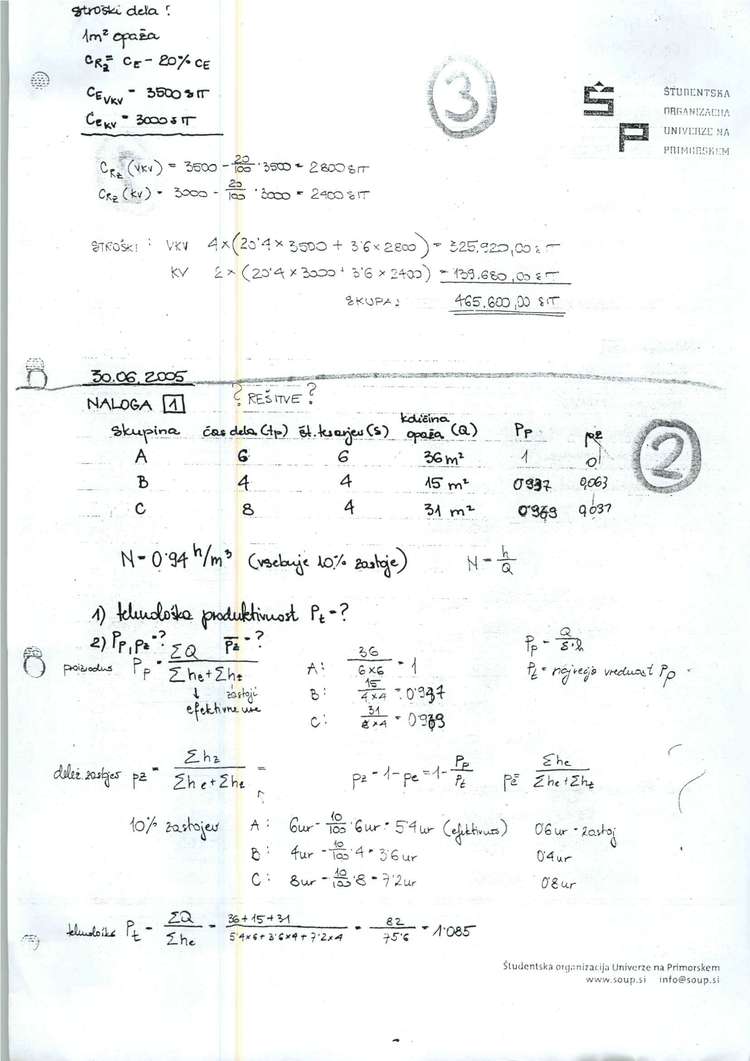 stroški dela :
1m² opaža
C_Rz = C_E - 20% C_E
C_E VKV = 3500 SIT
C_E KV = 3000 SIT
3
Š
P
ŠTUDENTSKA
ORGANIZACIJA
UNIVERZE NA
PRIMORSKEM
C_Rz (VKV) = 3500 - 20/100 · 3500 = 2800 SIT
C_Rz (KV) = 3000 - 20/100 · 3000 = 2400 SIT
STROŠKI : VKV 4 × (20'4 × 3500 + 3'6 × 2800) = 325.920,00 SIT
KV 2 × (20'4 × 3000 + 3'6 × 2400) = 139.680,00 SIT
SKUPAJ 465.600,00 SIT
30.06.2005
NALOGA 1 ? REŠITVE ?
2
Skupina čas dela (tp) št. tesarjev (S) količina opaža (Q) Pp pz
A 6 6 36 m² 1 0
B 4 4 15 m² 0'937 0,063
C 8 4 31 m² 0'969 0,031
N = 0'94 h/m³ (vsebuje 10% zastoje) N = h/Q
1) tehnološka produktivnost Pt = ?
2) Pp, pz = ? p̄z = ?
proizvodnos Pp = ΣQ / (Σhe + Σhz)
↓ zastoji
efektivne ure
A: 36 / 6×6 = 1
B: 15 / 4×4 = 0'937
C: 31 / 8×4 = 0'969
Pp = Q / S·h
Pt = največja vrednost Pp
delež zastojev pz = Σhz / (Σhe + Σhz) =
pz = 1 - pe = 1 - Pp/Pt
pe = Σhe / (Σhe + Σhz)
10% zastojev A : 6ur - 10/100 · 6ur = 5'4ur (efektivnos) 0'6ur = zastoj
B : 4ur - 10/100 · 4 = 3'6ur 0'4ur
C : 8ur - 10/100 · 8 = 7'2ur 0'8ur
tehnološka Pt = ΣQ / Σhe = 36+15+31 / 5'4×6+3'6×4+7'2×4 = 82 / 75'6 = 1'085
Študentska organizacija Univerze na Primorskem
www.soup.si info@soup.si